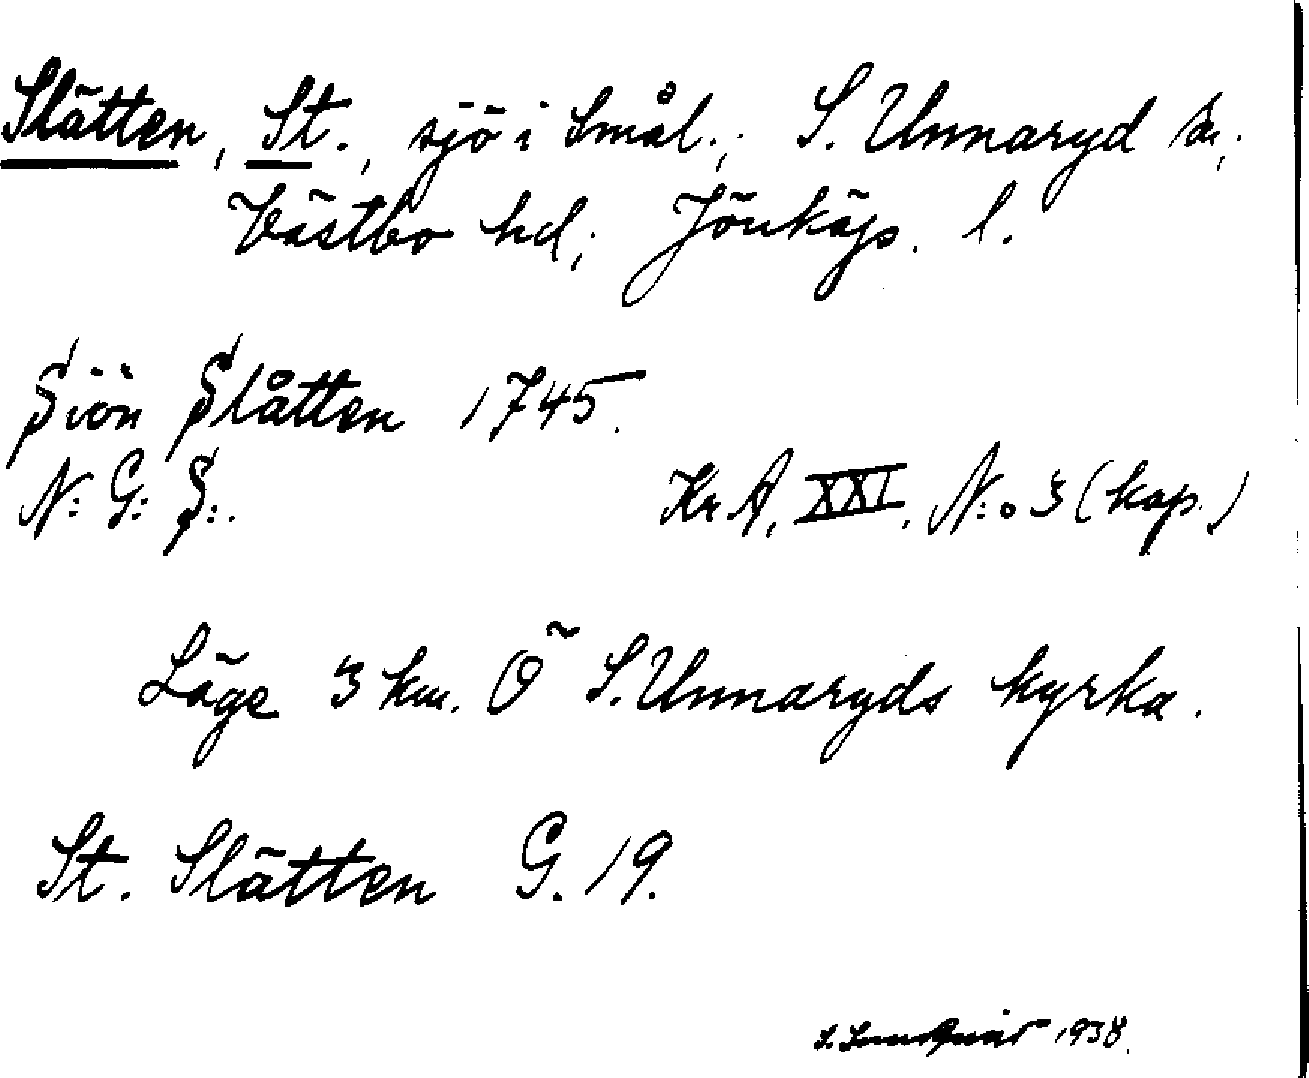 Slätten, St., sjö i Smål.; S. Unnaryd sn;
Västbo hd; Jönköps. l.
Siön Slåtten 1745.
N: G: S:.
Kr A, XXI, N:o 3 (kop.)
Läge 3 km. Ö S. Unnaryds kyrka.
St. Slätten G. 19.
1938.